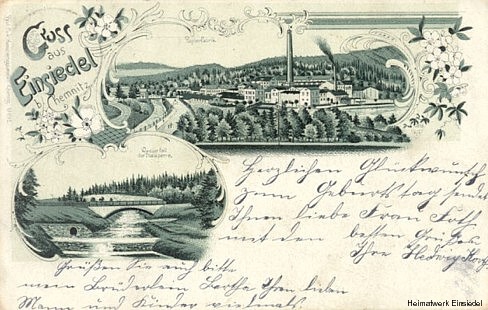 Gruss
aus
Einsiedel
b. Chemnitz
Papierfabrik
Wasserfall
der Thalsperre.
Herzlichen Glückwunsch
zum Geburtstag sendet
Ihnen liebe Frau
mit den besten Grüßen
Ihre Hedwig
Grüßen Sie auch bitte
mein Brüderlein Bertha Ihren lieben
Mann und Kinder vielmals.
Heimatwerk Einsiedel